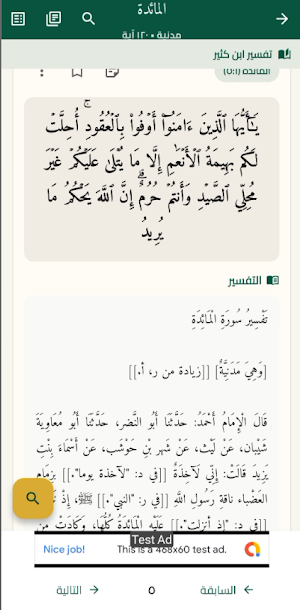 المائدة
مدنية • ١٢٠ آية
تفسير ابن كثير
المائدة (٥:١)
يَـٰٓأَيُّهَا ٱلَّذِينَ ءَامَنُوٓا۟ أَوْفُوا۟ بِٱلْعُقُودِ ۚ أُحِلَّتْ
لَكُم بَهِيمَةُ ٱلْأَنْعَـٰمِ إِلَّا مَا يُتْلَىٰ عَلَيْكُمْ غَيْرَ
مُحِلِّى ٱلصَّيْدِ وَأَنتُمْ حُرُمٌ ۗ إِنَّ ٱللَّهَ يَحْكُمُ مَا
يُرِيدُ
التفسير
تَفْسِيرُ سُورَةِ الْمَائِدَةِ
[وَهِيَ مَدَنِيَّةٌ] [[زيادة من ر، أ.]]
قَالَ الْإِمَامُ أَحْمَدُ: حَدَّثَنَا أَبُو النَّضْر، حَدَّثَنَا أَبُو مُعَاوِيَةَ
شَيْبان، عَنْ لَيْث، عَنْ شَهر بْنِ حَوْشَب، عَنْ أَسْمَاءَ بِنْتِ
يَزِيدَ قَالَتْ: إِنِّي لَآخِذَةٌ [[في د: "لآخذة يوما".]] بزِمَام
العَضْباء ناقةِ رسولِ اللَّهِ [[في ر: "النبي".]] ﷺ، إِذْ
[[في د: "إذ أنزلت".]] عَلَيْهِ الْمَائِدَةُ كُلُّهَا، وَكَادَتْ مِنْ
Test Ad
Nice job!
This is a 468x60 test ad.
السابقة
٥
التالية